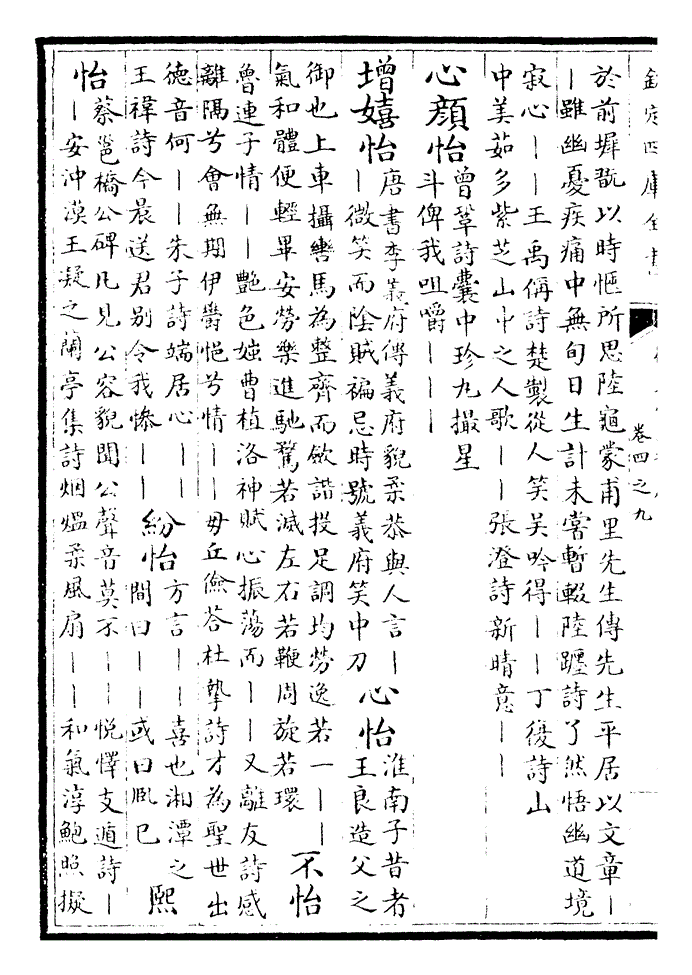 欽定四庫全書
卷四之九
於前墀翫以時怄所思陸龜蒙甫里先生傳先生平居以文章｜
｜雖幽憂疾痛中無旬日生計未嘗暫輟陸躔詩了然悟幽道境
寂心｜｜王禹偁詩楚製從人笑吳吟得｜｜丁復詩山
中美茹多紫芝山中之人歌｜｜張澄詩新晴意｜｜
心顏怡曾鞏詩囊中珍九撮星
斗俾我咀嚼｜｜｜
增嬉怡唐書李義府傳義府貌柔恭與人言｜
｜微笑而陰賊褊忌時號義府笑中刀
心怡淮南子昔者
王良造父之
御也上車攝轡馬為整齊而歛諧投足調均勞逸若一｜｜
氣和體便輕畢安勞樂進馳騖若滅左右若鞭周旋若環
不怡
魯連子情｜｜艷色媸曹植洛神賦心振蕩而｜｜又離友詩感
離隔兮會無期伊鬱悒兮情｜｜毋丘儉荅杜摯詩才為聖世出
德音何｜｜朱子詩端居心｜｜
王禕詩今晨送君别令我慘｜｜
紛怡方言｜｜喜也湘潭之
間曰｜｜或曰巸巳
熙
怡蔡邕橋公碑凡見公容貌聞公聲音莫不｜｜悅懌支遁詩｜
｜安沖漠王凝之蘭亭集詩烟熅柔風扇｜｜和氣淳鮑照擬